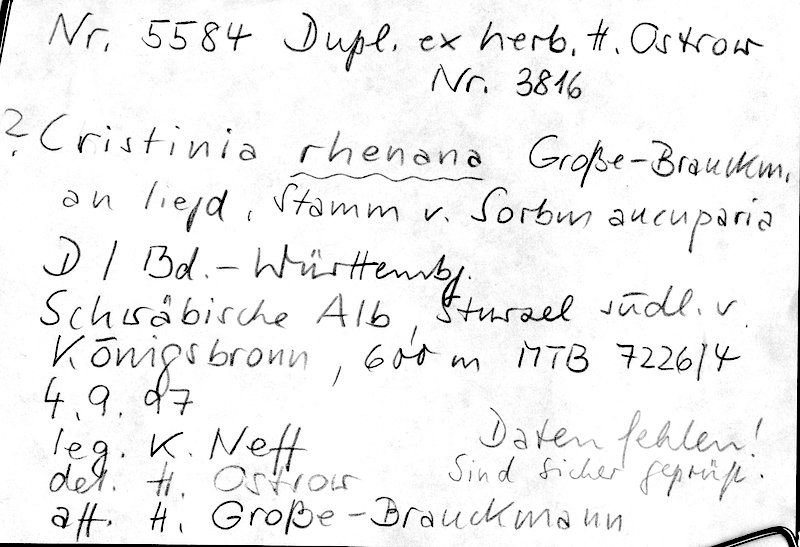 Nr. 5584 Dupl. ex herb. H. Ostrow
Nr. 3816
? Cristinia rhenana Große-Brauckm.
an liegd. Stamm v. Sorbus aucuparia
D / Bd.-Württembg.
Schwäbische Alb, südl. v.
Königsbronn, 600 m MTB 7226/4
4.9.97
leg. K. Neff
Daten fehlen!
det. H. Ostrow
Sind sicher geprüft.
aff. H. Große-Brauckmann